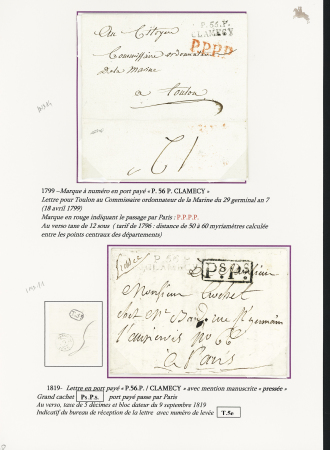 P.56.P.
CLAMECY
P.P.P.P.
Au Citoyen
Commissaire ordonnateur
de la Marine
a Toulon
1799 –Marque à numéro en port payé « P. 56 P. CLAMECY »
Lettre pour Toulon au Commissaire ordonnateur de la Marine du 29 germinal an 7
(18 avril 1799)
Marque en rouge indiquant le passage par Paris : P.P.P.P.
Au verso taxe de 12 sous ( tarif de 1796 : distance de 50 à 60 myriamètres calculée
entre les points centraux des départements)
P.56.P.
Ps.Ps.
Monsieur
Monsieur
rue St germain
l'auxerrois no 66
a Paris
1819- Lettre en port payé «P.56.P. / CLAMECY » avec mention manuscrite « pressée »
Grand cachet Ps.Ps. port payé passe par Paris
Au verso, taxe de 5 décimes et bloc dateur du 9 septembre 1819
Indicatif du bureau de réception de la lettre avec numéro de levée T.5e